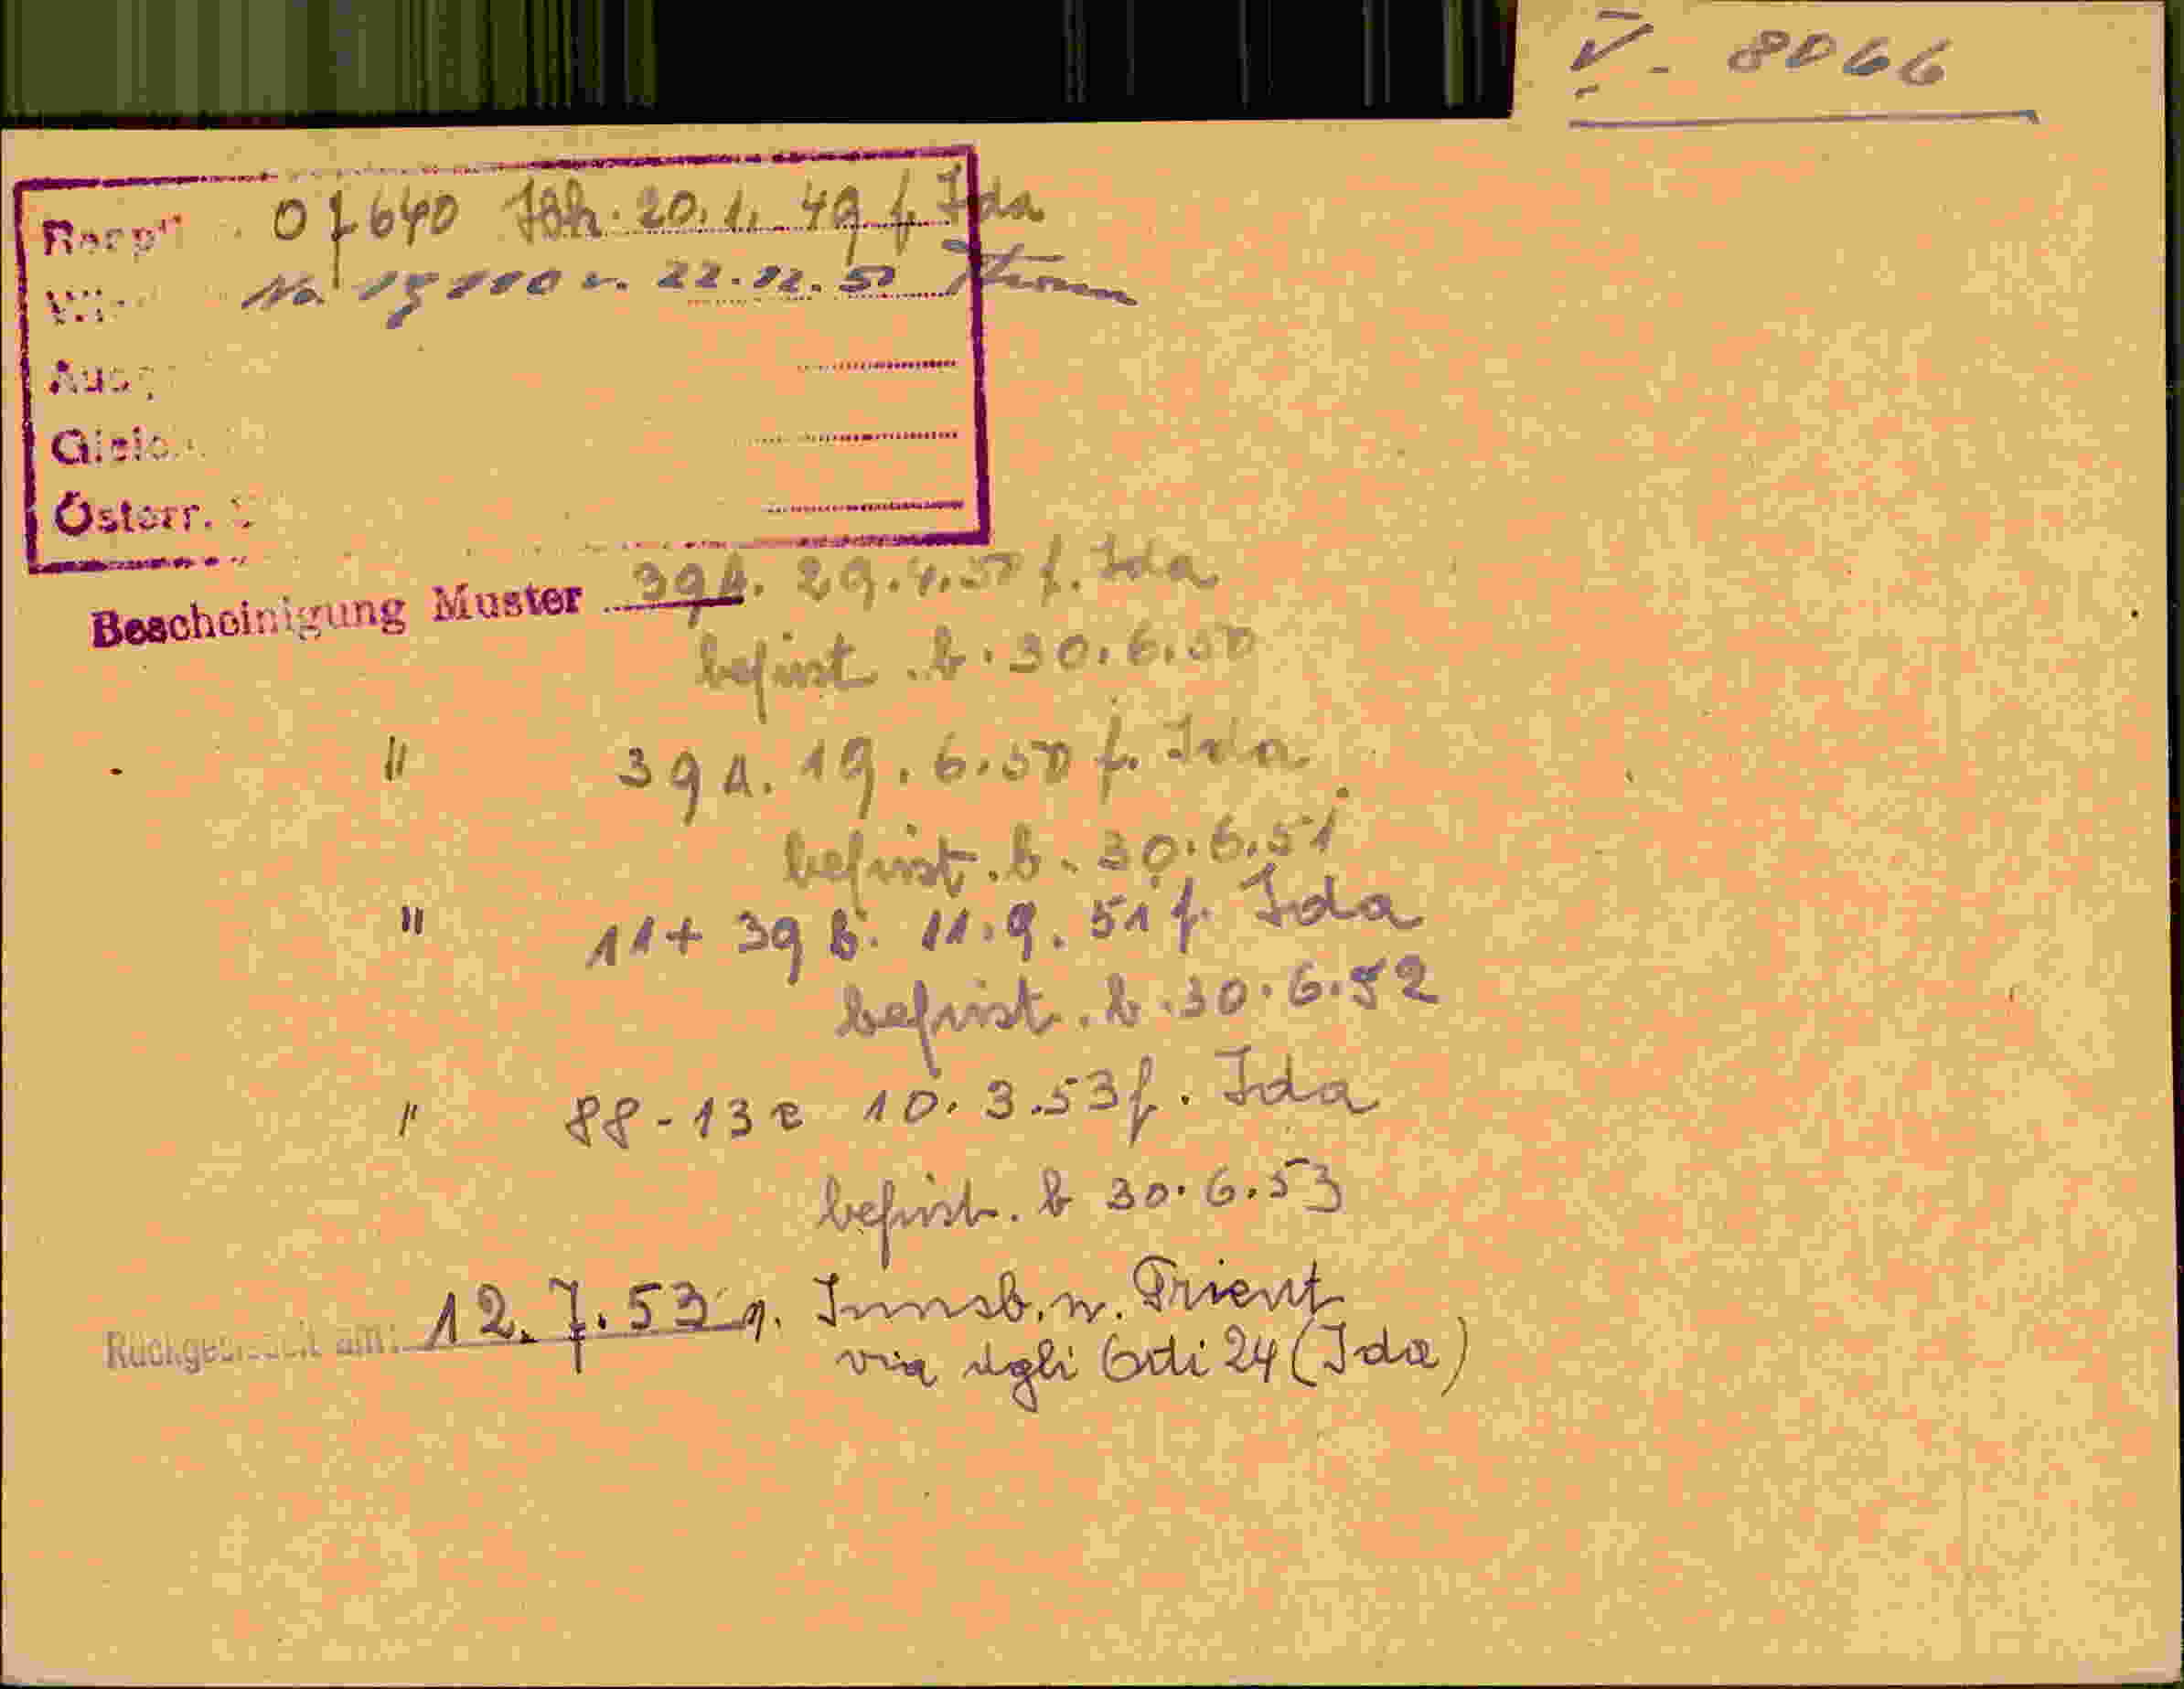 V. 8066
07640 Ibk. 20.1.49 f. Ida
No. 19110 v. 22.12.50
Österr.
Bescheinigung Muster 39A. 29.4.50 f. Ida
befrist. b. 30.6.50
" 39A. 19.6.50 f. Ida
befrist. b. 30.6.51
" 11+39 b. 11.9.51 f. Ida
befrist. b. 30.6.52
" 88-13 c 10.3.53 f. Ida
befrist. b 30.6.53
12.7.53 Innsb. n. Trient
via degli Orti 24 (Ida)